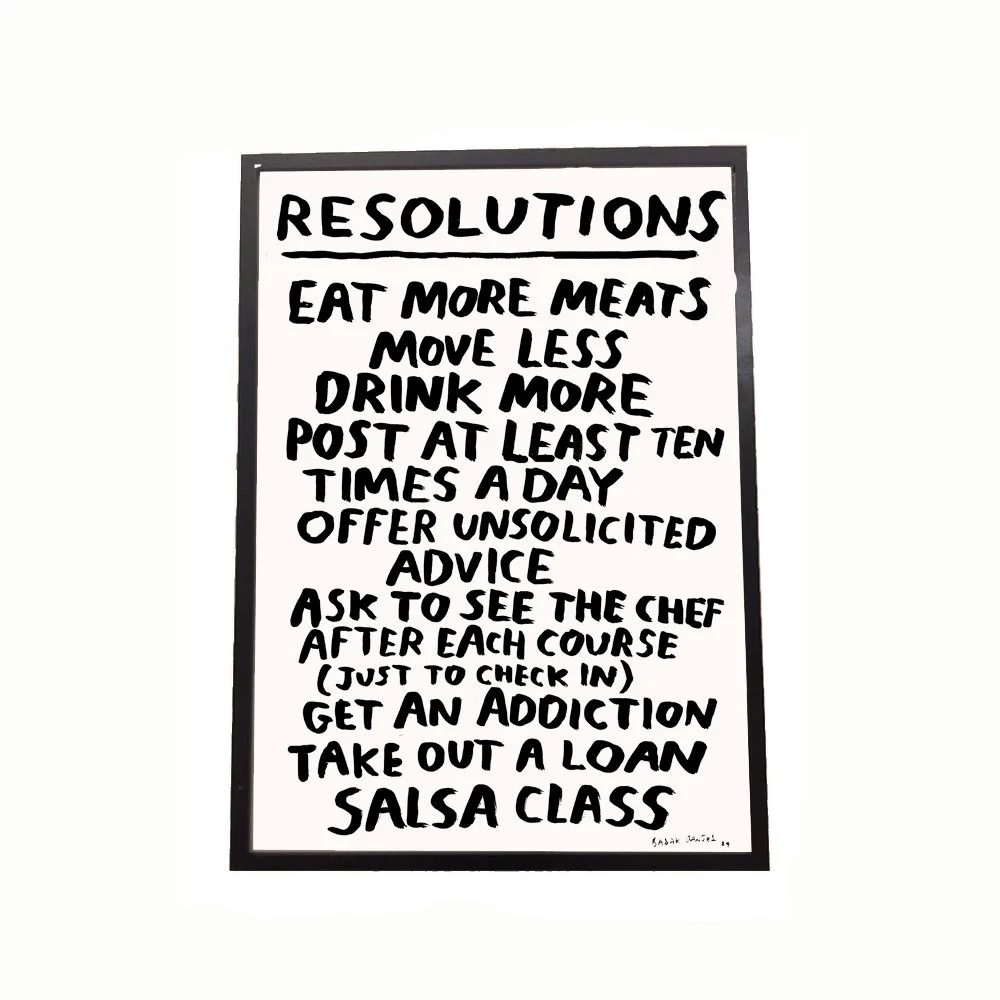 RESOLUTIONS
EAT MORE MEATS
MOVE LESS
DRINK MORE
POST AT LEAST TEN
TIMES A DAY
OFFER UNSOLICITED
ADVICE
ASK TO SEE THE CHEF
AFTER EACH COURSE
(JUST TO CHECK IN)
GET AN ADDICTION
TAKE OUT A LOAN
SALSA CLASS
BABAK